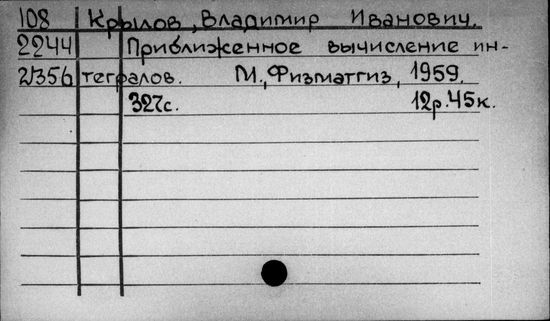 108 Крылов, Владимир Иванович.
2244 Приближенное вычисление ин-
2356 тегралов. М., Физматгиз, 1959.
327с. 12р.45к.